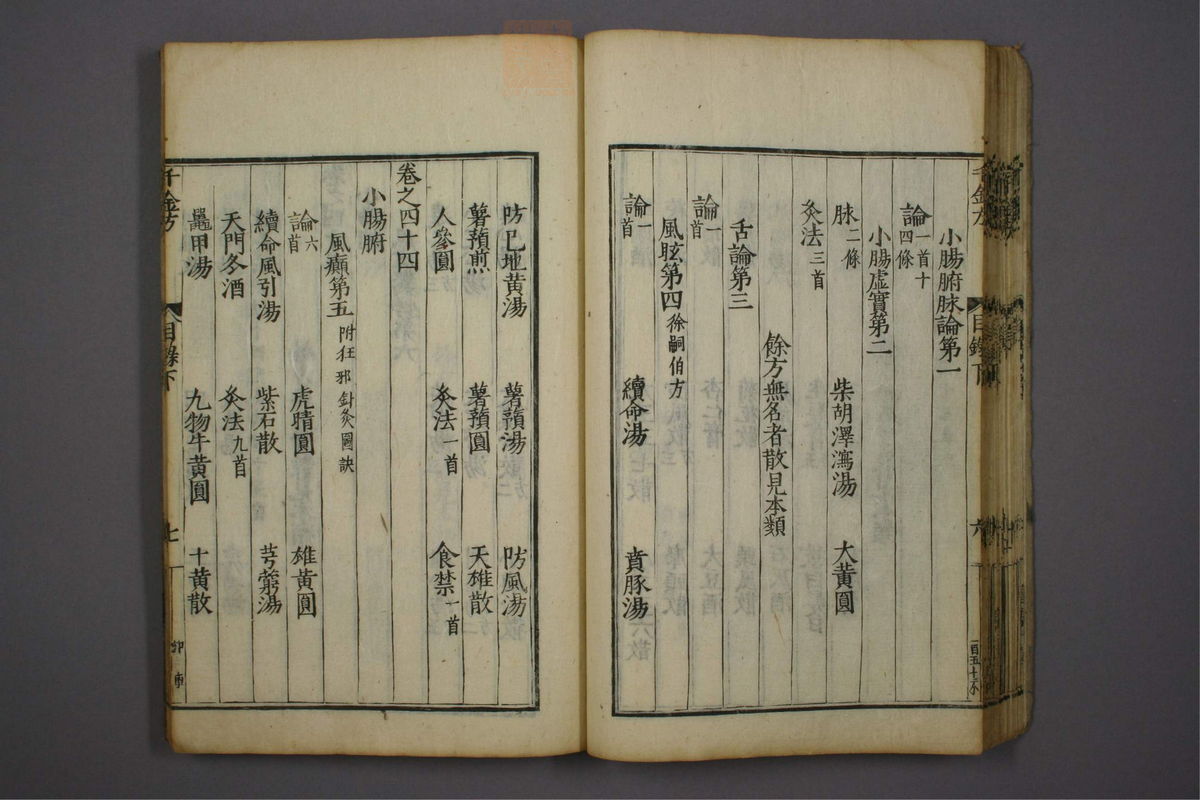 小腸腑脉論第一
論一首十四條
小腸虛實第二
脉二條 柴胡澤瀉湯 大黄圓
灸法三首
餘方無名者散見本類
舌論第三
論一首
風眩第四徐嗣伯方
論一首 續命湯 賁豚湯
防巳地黄湯 薯蕷湯 防風湯
薯蕷煎 薯蕷圓 天雄散
人參圓 灸法一首 食禁一首
卷之四十四
小腸腑
風癲第五附狂邪針灸圖訣
論六首 虎睛圓 雄黄圓
續命風引湯 紫石散 芎藭湯
天門冬酒 灸法九首
鼉甲湯 九物牛黄圓 十黄散
千金方 目錄下 七
千金方 目錄下 六